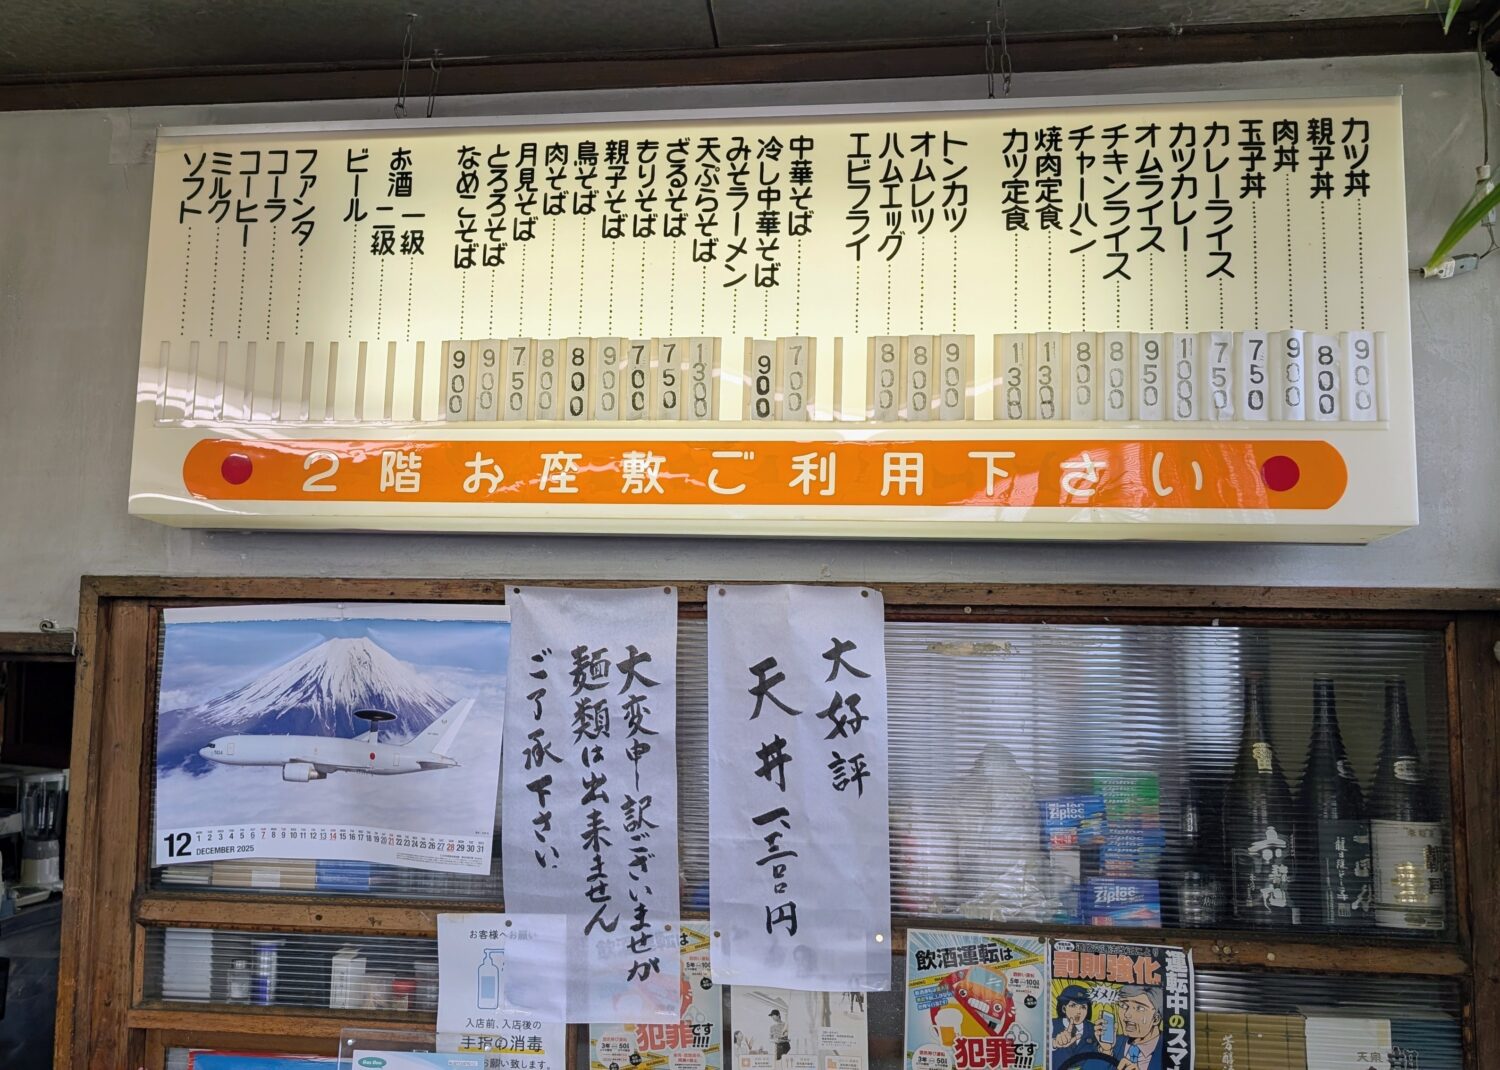 カツ丼 900
親子丼 800
肉丼 900
玉子丼 750
カレーライス 750
カツカレー 1000
オムライス 950
チキンライス 800
チャーハン 800
焼肉定食 1300
カツ定食 1300
トンカツ 900
オムレツ 800
ハムエッグ 800
エビフライ
中華そば 700
冷し中華そば 900
みそラーメン
天ぷらそば 1300
ざるそば 750
もりそば 700
親子そば 900
鳥そば 800
肉そば 800
月見そば 750
とろろそば 900
なめこそば 900
お酒 一級
二級
ビール
ファンタ
コーラ
コーヒー
ミルク
ソフト
2階お座敷ご利用下さい
大好評
天丼 一、三〇〇円
大変申訳ございませが
麺類は出来ません
ご了承下さい
12 DECEMBER 2025
1 2 3 4 5 6 7 8 9 10 11 12 13 14 15 16 17 18 19 20 21 22 23 24 25 26 27 28 29 30 31
お客様へお願い
入店前、入店後の
手指の消毒
お願い致します。
犯罪です!!!!
飲酒運転は
犯罪です!!!!
罰則強化
運転中のスマ
ダメ!!
Ziploc
Ziploc
Ziploc